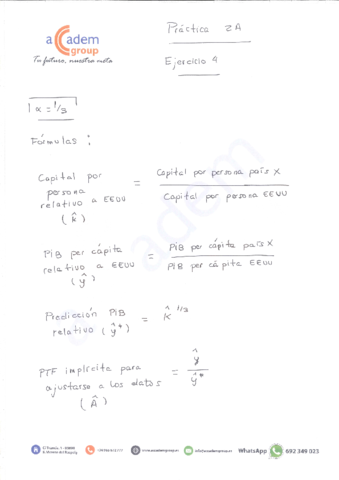 academ
group
Tu futuro, nuestra meta
Práctica 2A
Ejercicio 4
α = 1/3
Fórmulas :
Capital por persona relativo a EEUU (k̂) = Capital por persona país X / Capital por persona EEUU
PIB per cápita relativo a EEUU (ŷ) = PIB per cápita país X / PIB per cápita EEUU
Predicción PIB relativo (ŷ*) = k̂ 1/3
PTF implícita para ajustarse a los datos (Â) = ŷ / ŷ*
www.academgroup.es
info@academgroup.es
WhatsApp
692 349 023